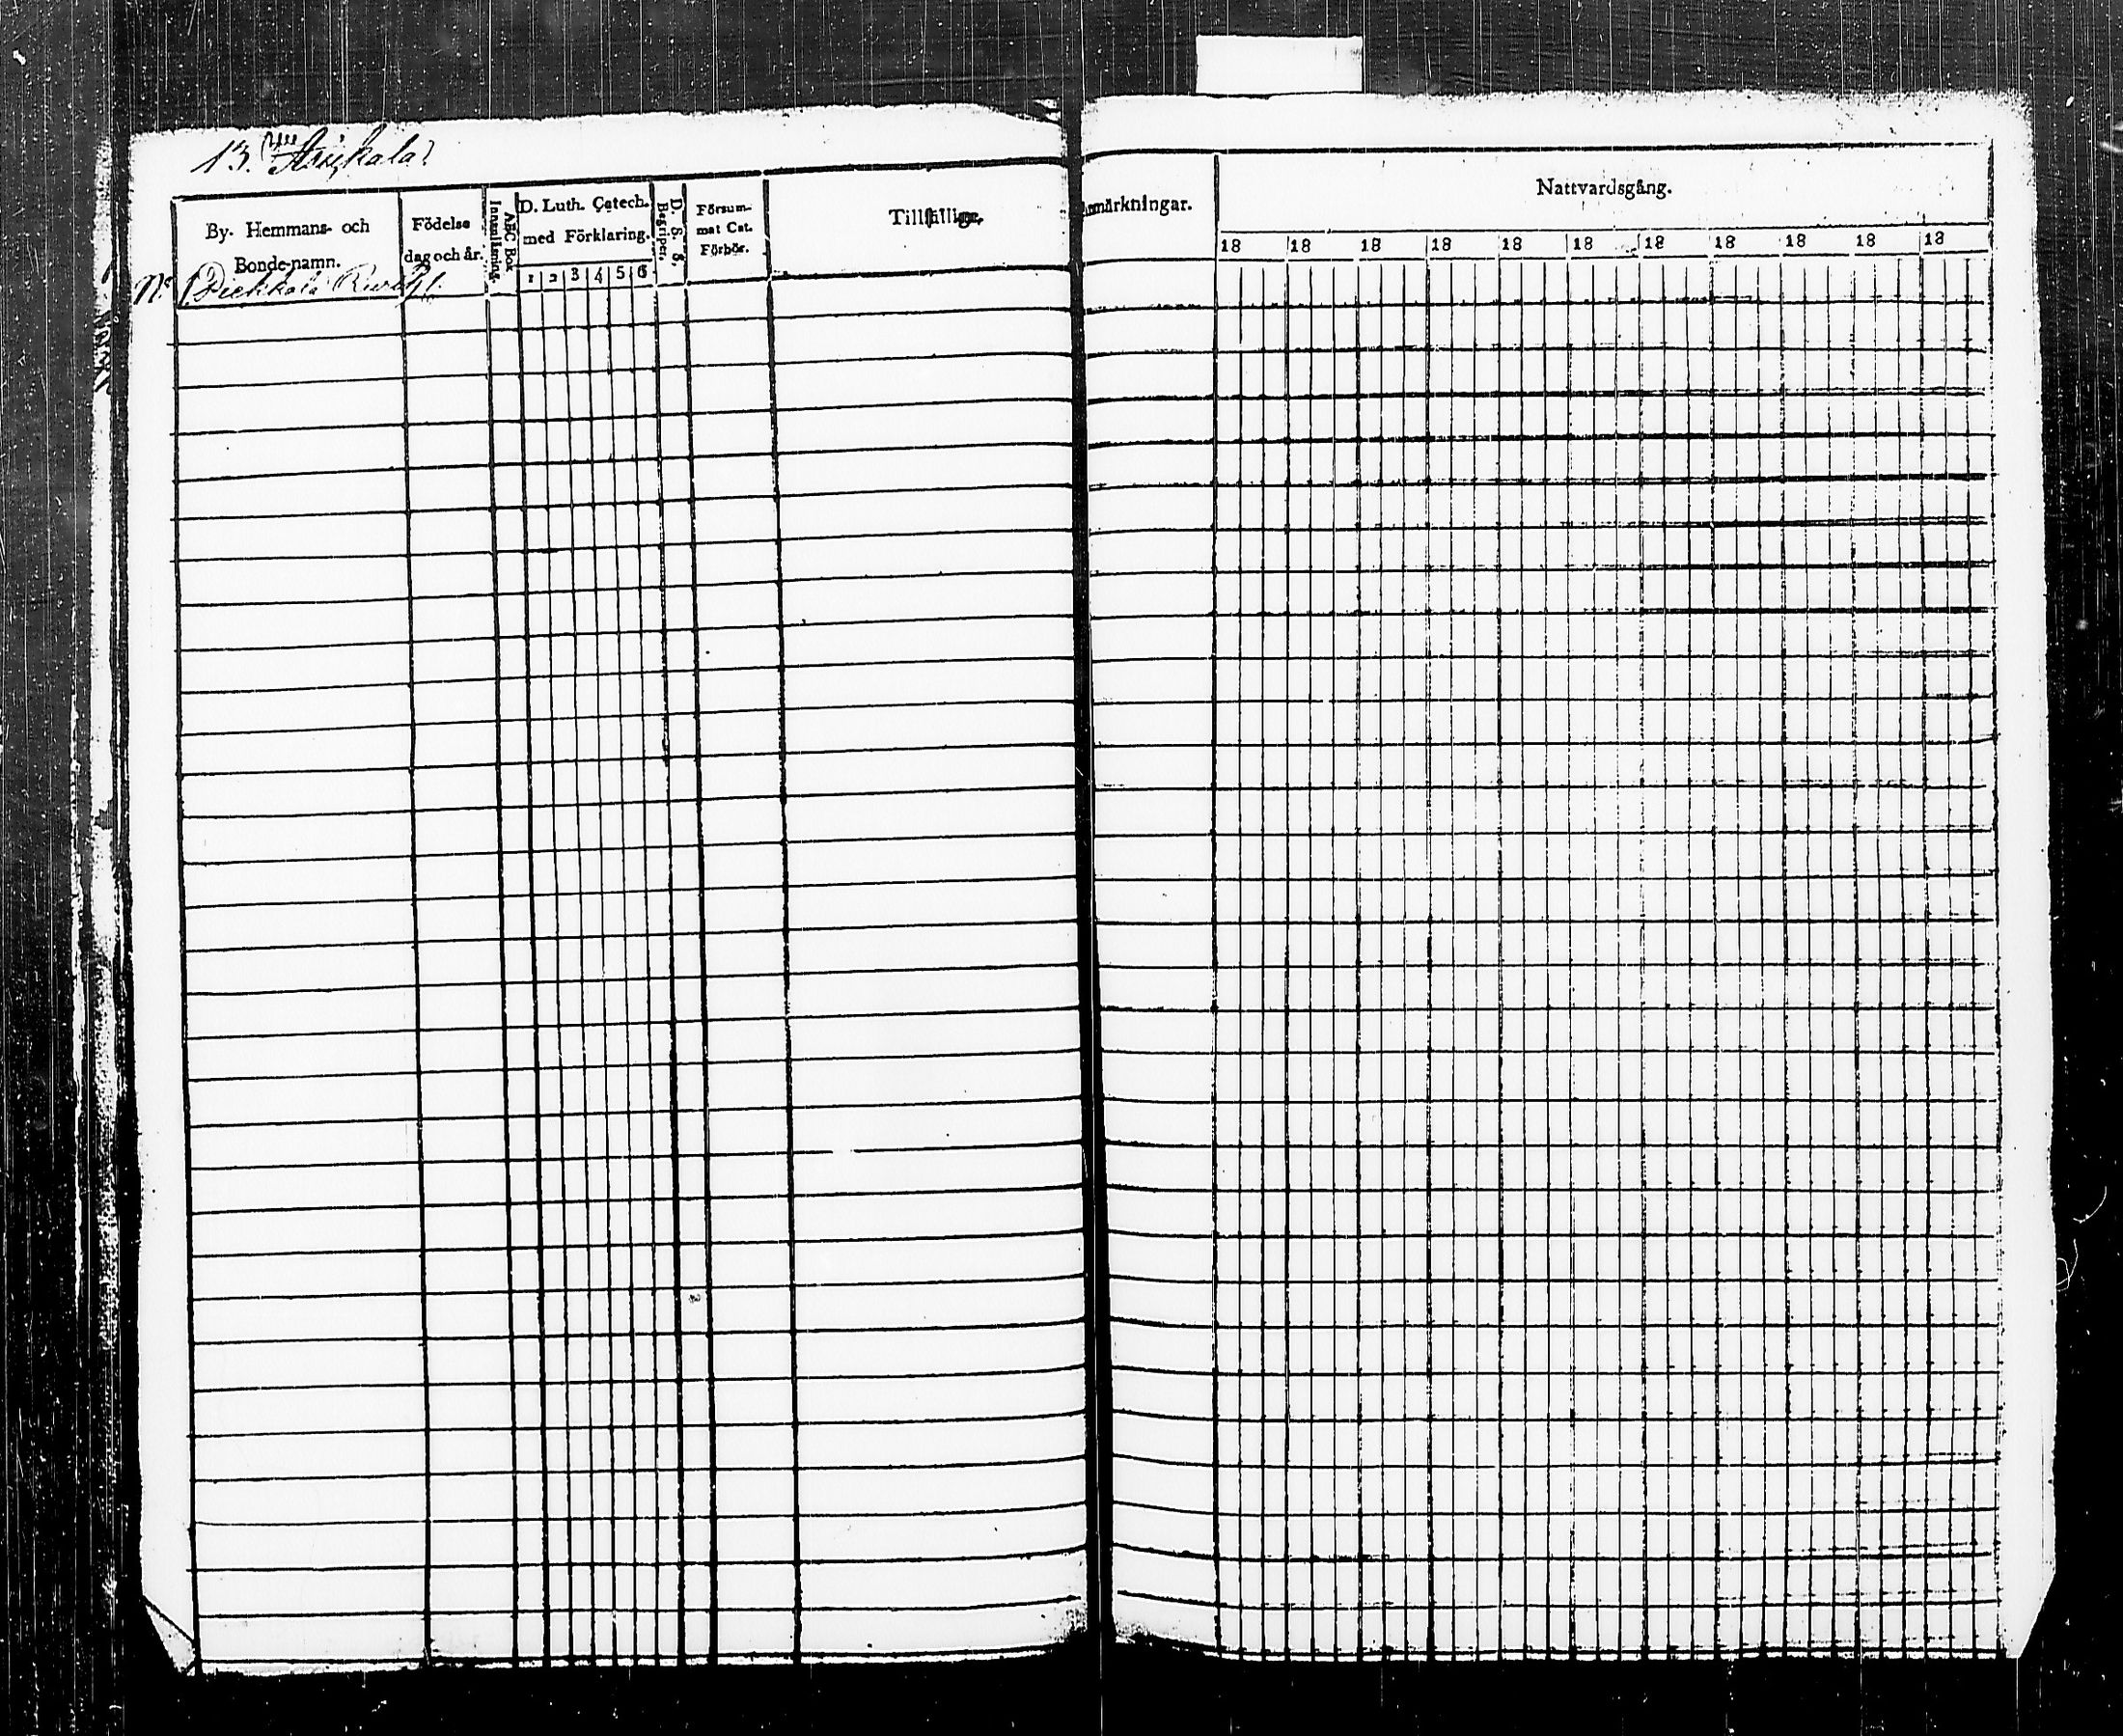 13.
By. Hemmans- och Bonde-namn.
Födelse dag och år.
ABC Bok
Innanläsning.
D. Luth. Catech. med Förklaring.
1 2 3 4 5 6
D. S. S.
Begriper.
Försum-
mat Cat.
Förhör.
Tillfällige
märkningar.
Nattvardsgång.
18 18 18 18 18 18 18 18 18 18 18
N: